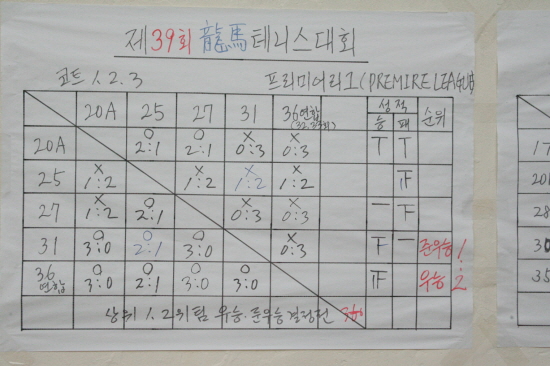 제39회 龍馬테니스대회
코트 1.2.3 프리미어리그(PREMIRE LEAGUE)
성적 순위
20A 25 27 31 36연합 승 패
20A O 2:1 O 2:1 X 0:3 X 0:3 T T
25 X 1:2 X 1:2 X 1:2 X 1:2
27 X 1:2 O 2:1 X 0:3 X 0:3 一
31 O 3:0 O 2:1 O 3:0 X 0:3 一 준우승
36연합 O 3:0 O 2:1 O 3:0 O 3:0 우승
상위 1.2위팀 우승.준우승결정전
17
20
28
30
35